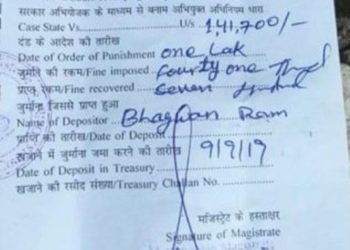 सरकार अभियोजक के माध्यम से बनाम अभियुक्त अधिनियम धारा
Case State Vs. U/s 1,41,700/-
दंड के आदेश की तारीख
Date of Order of Punishment one Lak
जुर्माने की रकम/Fine imposed Fourty one
प्राप्त रकम/Fine recovered Seven
जुर्माना जिससे प्राप्त हुआ
Name of Depositor Bhagwan Ram
प्राप्ति की तारीख/Date of Deposit
खजाने में जुर्माना जमा करने की तारीख 9/9/19
Date of Deposit in Treasury
खजाने की रसीद संख्या/Treasury Challan No.
मजिस्ट्रेट के हस्ताक्षर
Signature of Magistrate